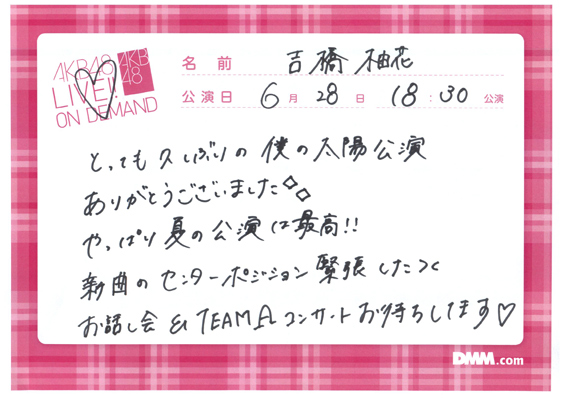 AKB48
LIVE!!
ON DEMAND
AKB
48
名前 吉橋 柚花
公演日 6月 28日 18:30 公演
とっても久しぶりの 僕の太陽公演
ありがとうございました
やっぱり夏の公演は最高!!
新曲のセンターポジション緊張した
お話し会 & TEAM コンサートお待ちしてます♡
DMM.com